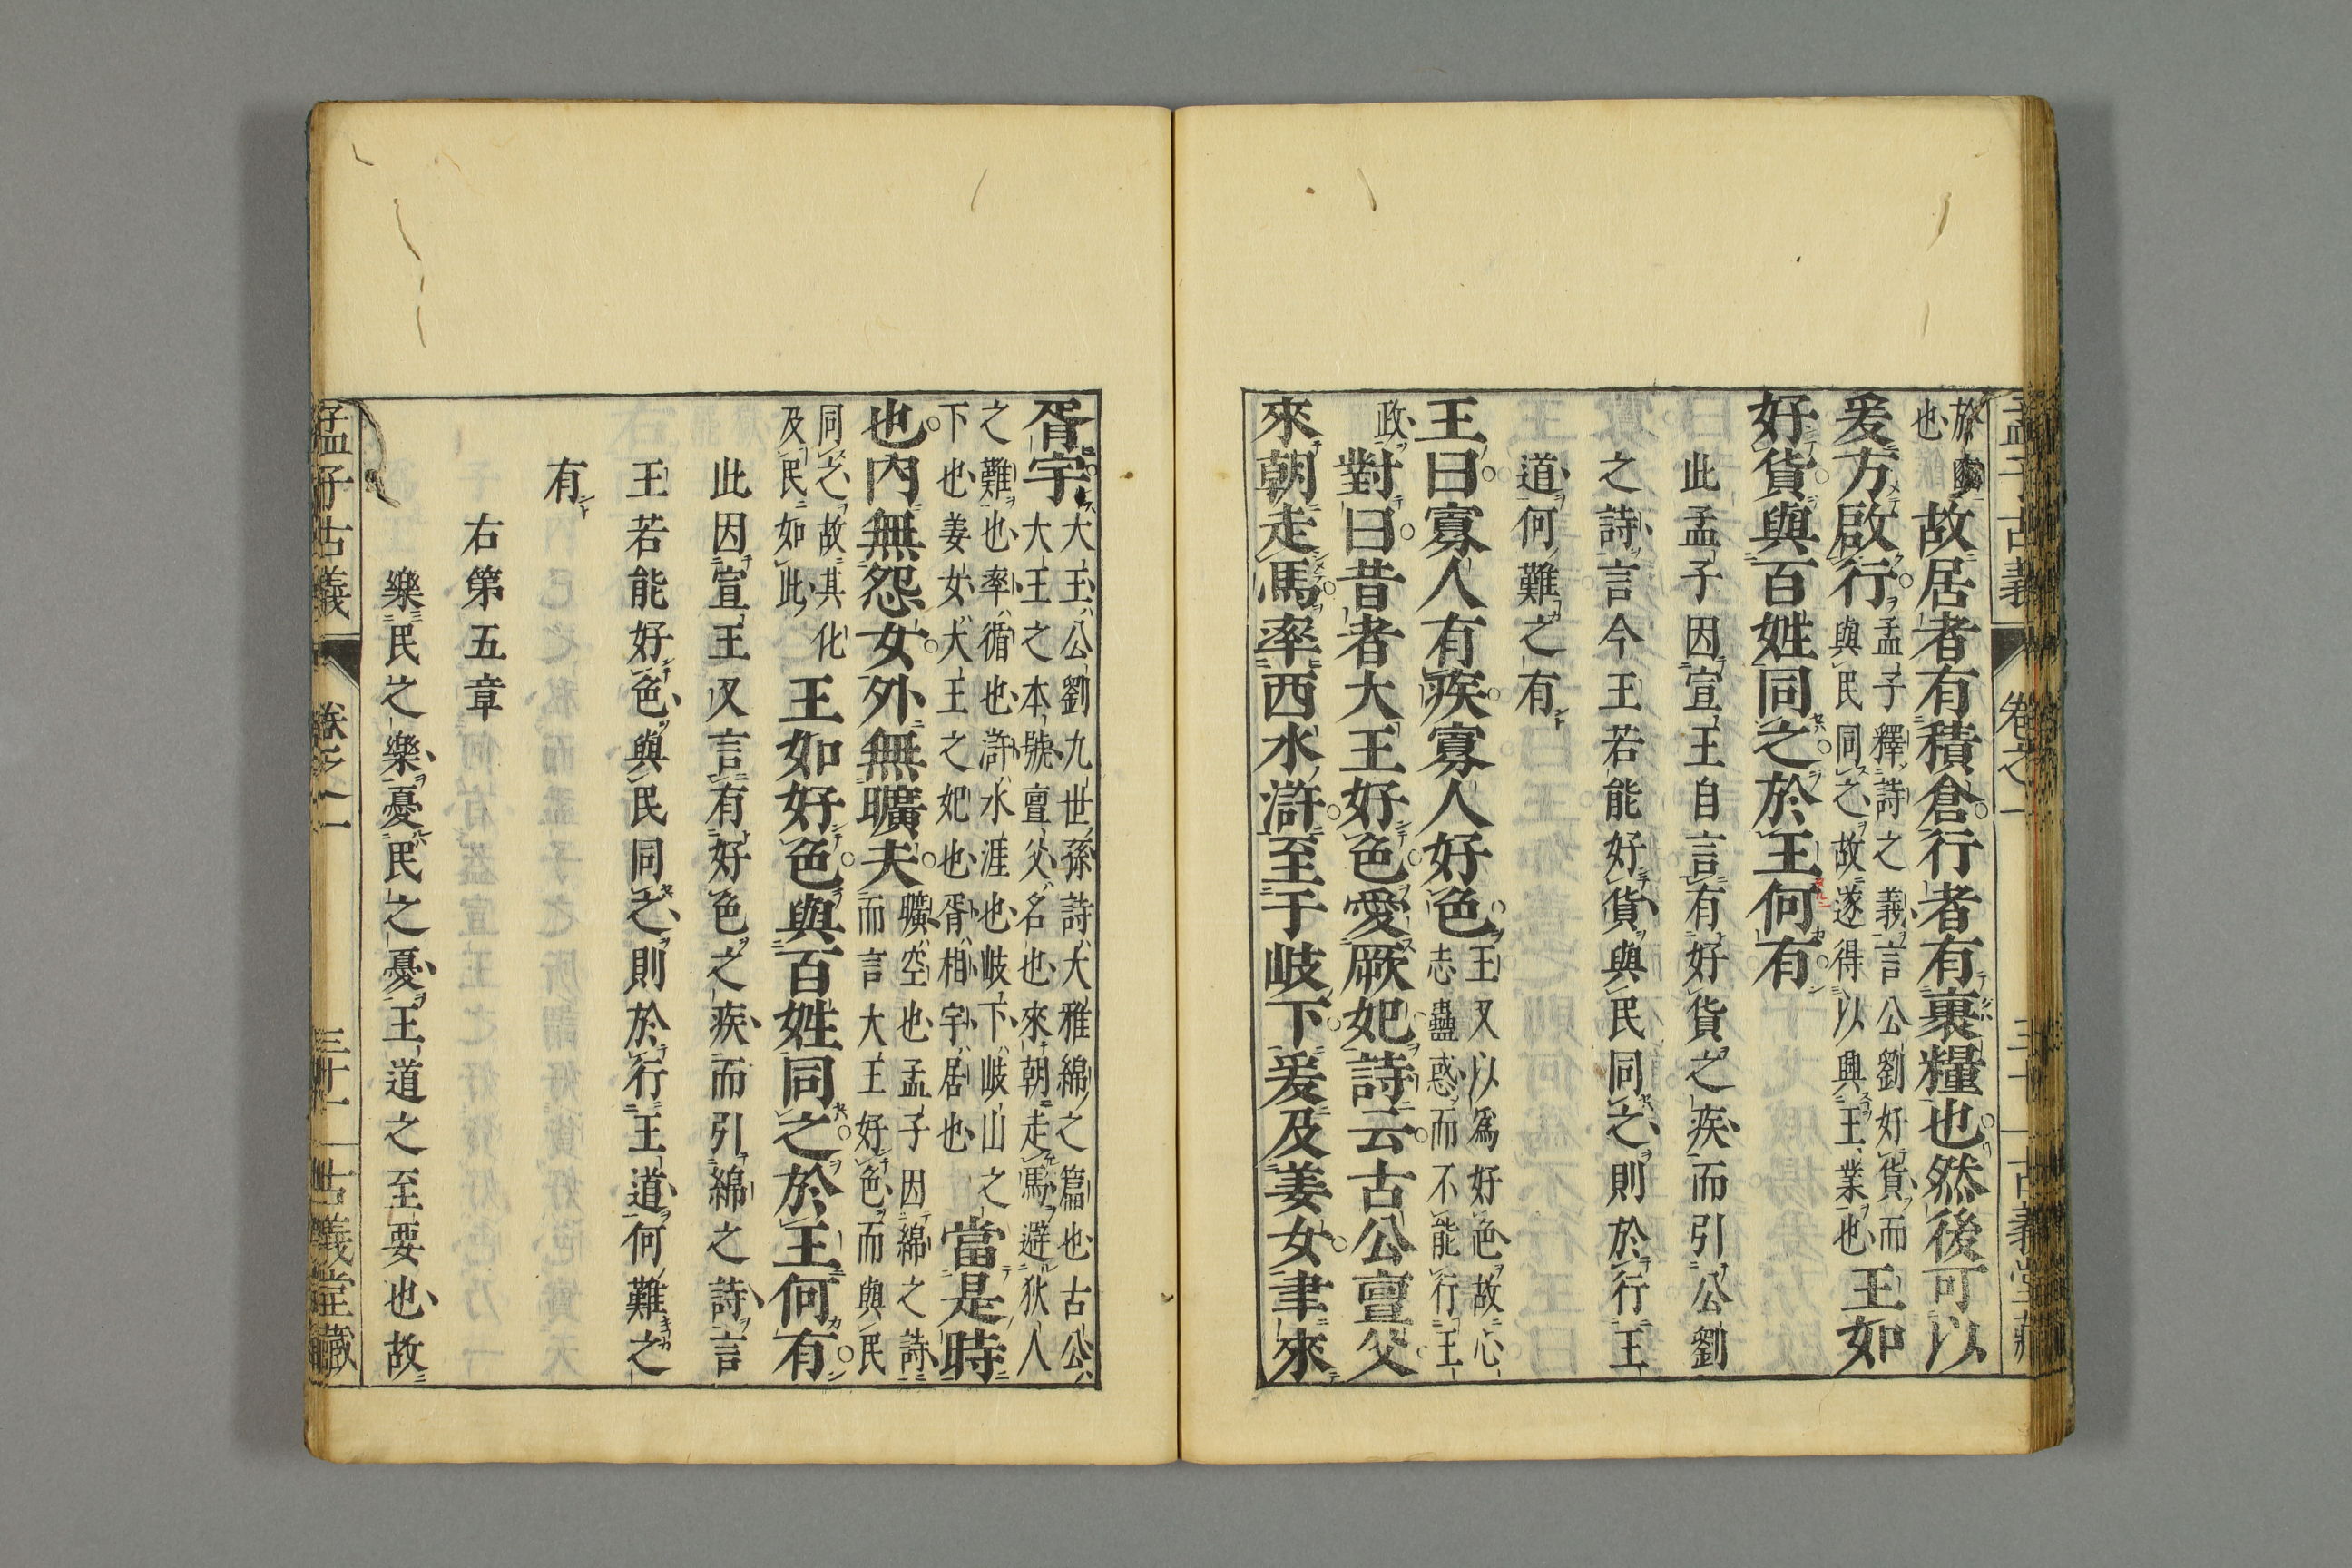 孟子古義 卷之一 三十一 古義堂藏
於
也
故居者有積倉行者有裹糧也然後可以
爰方啟行
孟子釋詩之義言公劉好貨而
與民同之故遂得以興王業也
王如
好貨與百姓同之於王何有
此孟子因宣王自言有好貨之疾而引公劉
之詩言今王若能好貨與民同之則於行王
道何難之有
王曰寡人有疾寡人好色
王又以爲好色故心
志蠱惑而不能行王
政
對曰昔者大王好色愛厥妃詩云古公亶父
來朝走馬率西水滸至于岐下爰及姜女聿來
胥宇
大王公劉九世孫詩大雅綿之篇也古公
大王之本號亶父名也來朝走馬避狄人
之難也率循也滸水涯也岐下岐山之
下也姜女大王之妃也胥相宇居也
當是時
也內無怨女外無曠夫
曠空也孟子因綿之詩
而言大王好色而與民
同之故其化
及民如此
王如好色與百姓同之於王何有
此因宣王又言有好色之疾而引綿之詩言
王若能好色與民同之則於行王道何難之
有
右第五章
樂民之樂憂民之憂王道之至要也故
孟子古義 卷之一 三十一 古義堂藏